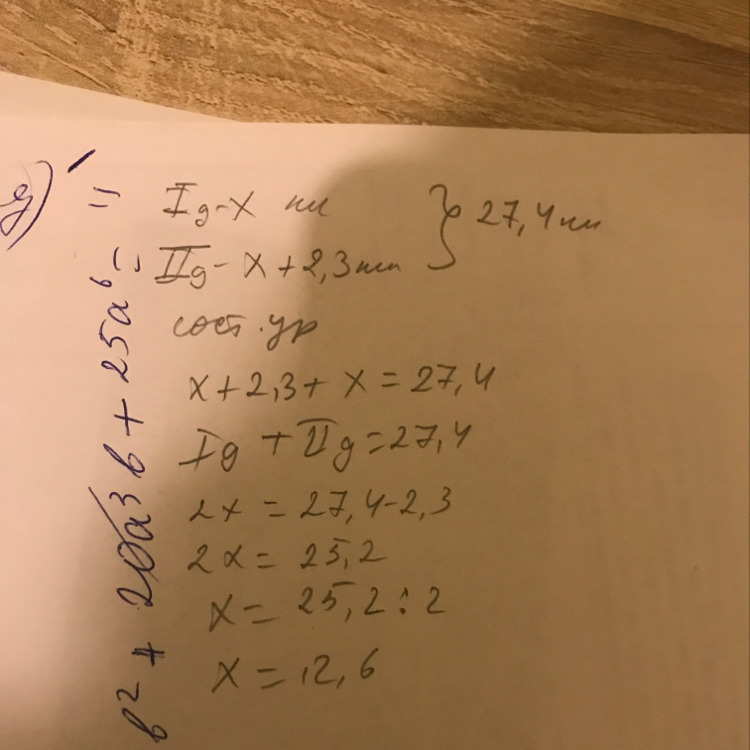 Iд - x км
IIд - x + 2,3 км } 27,4 км
сост. ур
x + 2,3 + x = 27,4
Iд + IIд = 27,4
2x = 27,4 - 2,3
2x = 25,2
x = 25,2 : 2
x = 12,6
b² + 20a³b + 25a⁶ =